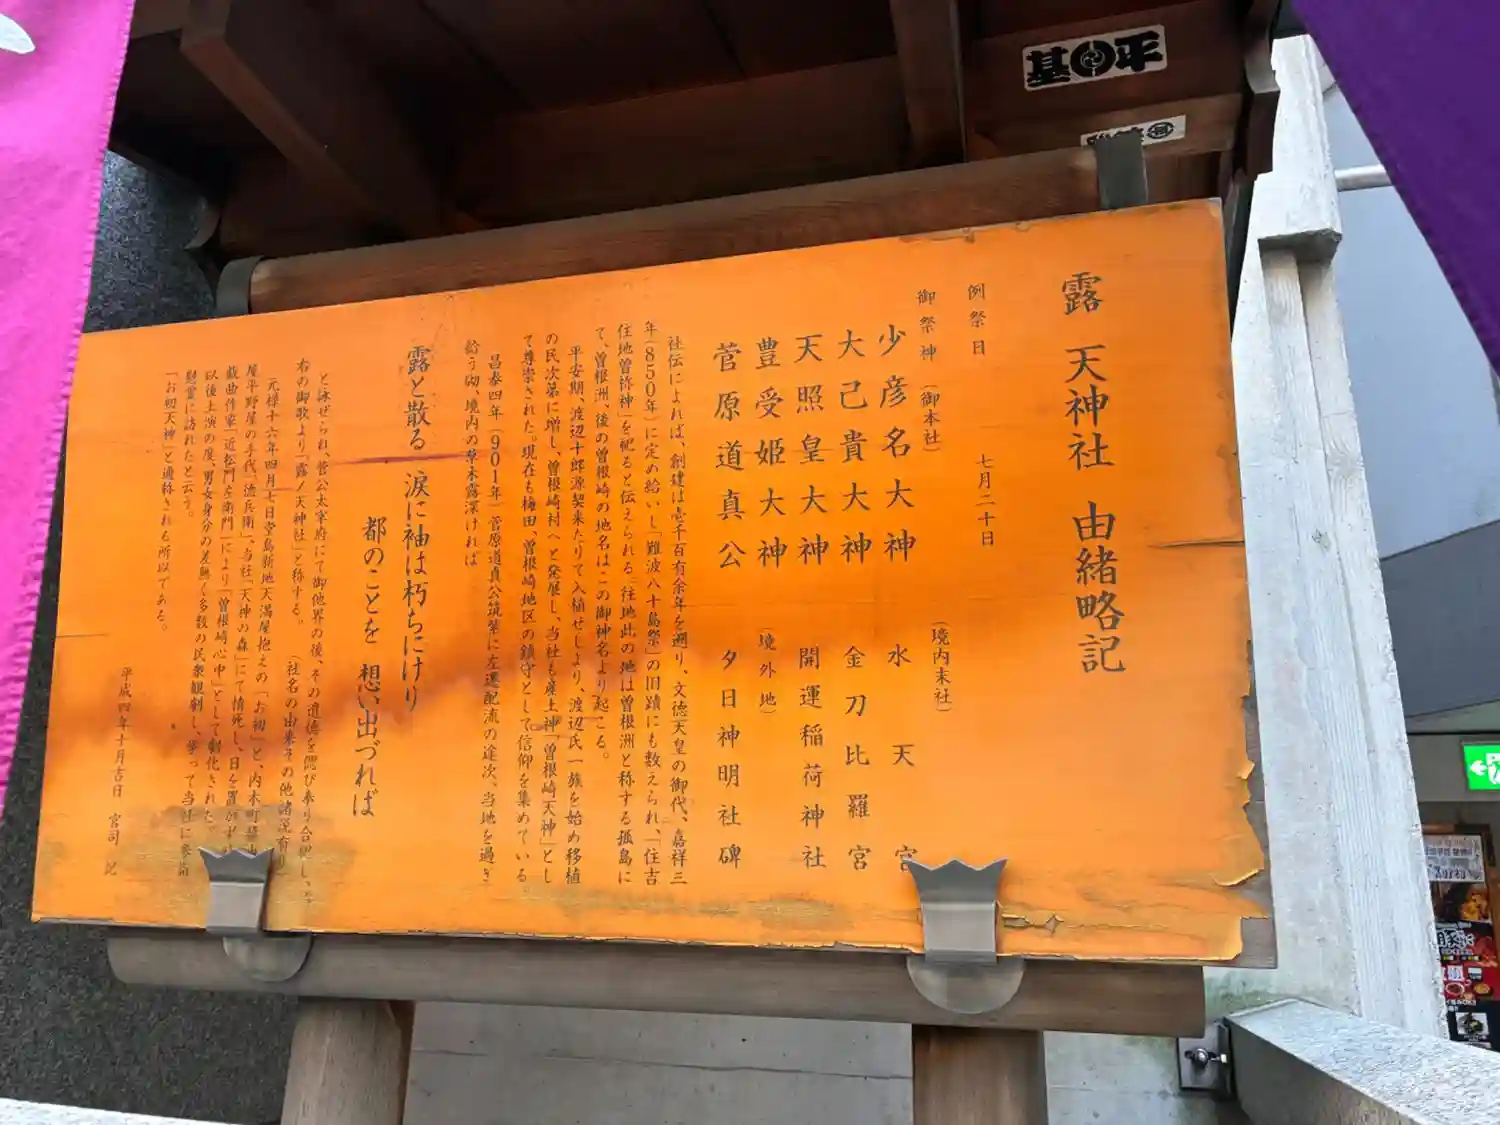 露 天神社 由緒略記
例祭日 七月二十日
御祭神(御本社)
少彦名大神
大己貴大神
天照皇大神
豊受姫大神
菅原道真公
(境内末社)
水天宮
金刀比羅宮
開運稲荷神社
(境外地)
夕日神明社碑
社伝によれば、創建は壱千百有余年を遡り、文徳天皇の御代、嘉祥三
年(850年)に定め給いし「難波八十島祭」の旧蹟にも数えられ、「住吉
住地曽祢神」を祀ると伝えられる。往地此の地は曽根洲と称する孤島に
て、曽根洲、後の曽根崎の地名はこの御神名より起こる。
平安期、渡辺十郎源契来たりて入植せしより、渡辺氏一族を始め移植
の民次第に増し、曽根崎村へと発展し、当社も産土神「曽根崎天神」とし
て尊崇された。現在も梅田、曽根崎地区の鎮守として信仰を集めている。
昌泰四年(901年)菅原道真公筑紫に左遷配流の途次、当地を過ぎ
給う砌、境内の草木露深ければ
露と散る 涙に袖は朽ちにけり
都のことを 想い出づれば
と詠ぜられ、菅公太宰府にて御他界の後、その遺徳を偲び奉り合祀し、
右の御歌より「露ノ天神社」と称する。 (社名の由来その他諸説有り)
元禄十六年四月七日堂島新地天満屋抱えの「お初」と、内本町
屋平野屋の手代「徳兵衛」、当社「天神の森」にて情死し、日を置かず
戯曲作家「近松門左衛門」により「曽根崎心中」として劇化された。
以後上演の度、男女身分の差無く多数の民衆観劇し、挙って当社に参詣
慰霊に訪れたと云う。
「お初天神」と通称される所以である。
平成四年十月吉日 宮司 記
基 平